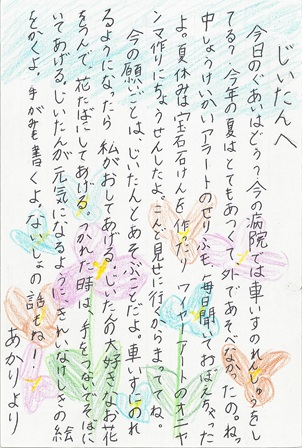 じいたんへ
今日のぐあいはどう？今の病院では車いすのれんしゅうをし
てる？今年の夏はとてもあつくて、外であそべなかったの。ねっ
中しょうけいかいアラートのせりふも、毎日聞いておぼえちゃった
よ。夏休みは、宝石石けんを作ったり、ワイヤーアートのオニヤ
ンマ作りにちょうせんしたよ。こんど見せに行くからまっててね。
今の願いごとは、じいたんとあそぶことだよ。車いすのれ
るようになったら、私がおしてあげる。じいたんの大好きなお花
をつんで、花たばにしてあげる。つかれた時は、手をつないでそばに
いてあげる。じいたんが元気になるように、きれいなけしきの絵
をかくよ。手がみも書くよ。ないしょの話もね！
あかりより